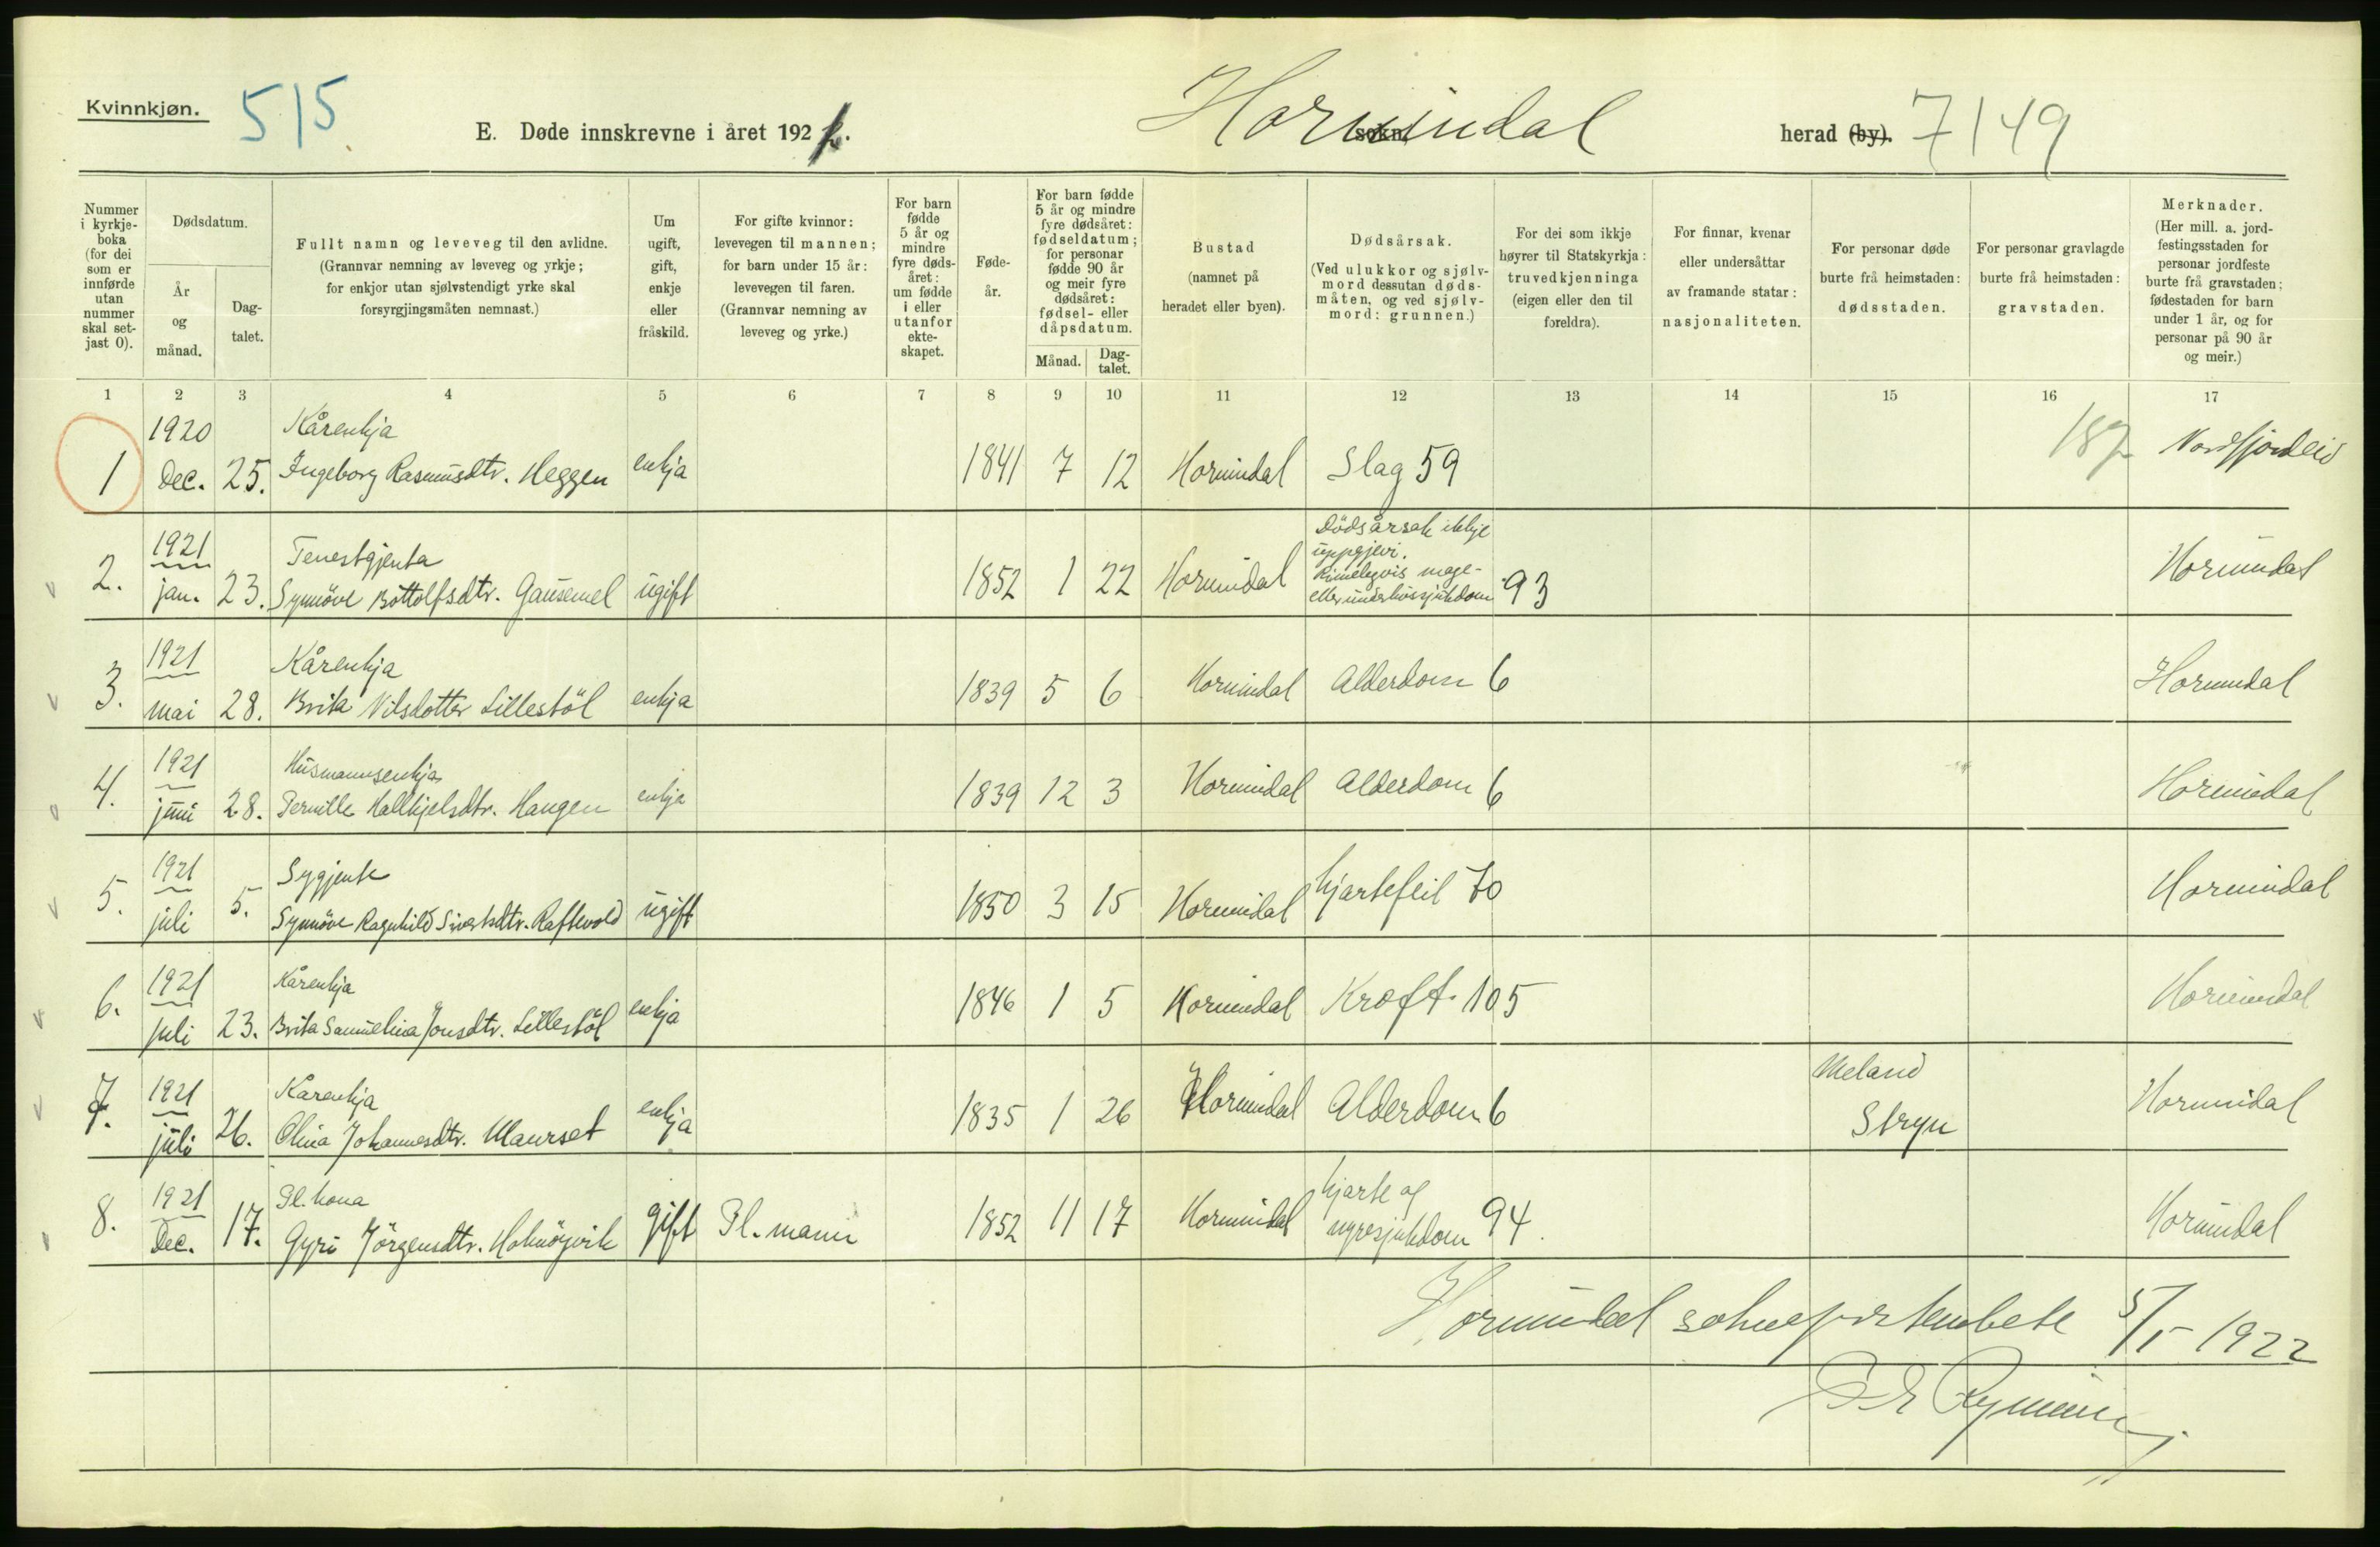 Kvinnkjøn.
515
E. Døde innskrevne i året 1921.
Hornindal
sokn,
herad (by).
7149
Nummer i kyrkjeboka (for dei som er innførde utan nummer skal setjast 0).
Dødsdatum.
År og månad.
Dag-talet.
Fullt namn og leveveg til den avlidne.
(Grannvar nemning av leveveg og yrkje;
for enkjor utan sjølvstendigt yrke skal
forsyrgjingsmåten nemnast.)
Um ugift, gift, enkje eller fråskild.
For gifte kvinnor:
levevegen til mannen;
for barn under 15 år:
levevegen til faren.
(Grannvar nemning av
leveveg og yrke.)
For barn fødde 5 år og mindre fyre dødsåret: um fødde i eller utanfor ekteskapet.
Føde-år.
For barn fødde 5 år og mindre fyre dødsåret: fødseldatum; for personar fødde 90 år og meir fyre dødsåret: fødsel- eller dåpsdatum.
Månad.
Dag-talet.
Bustad
(namnet på
heradet eller byen).
Dødsårsak.
(Ved ulukkor og sjølv-
mord dessutan døds-
måten, og ved sjølv-
mord: grunnen.)
For dei som ikkje
høyrer til Statskyrkja:
truvedkjenninga
(eigen eller den til
foreldra).
For finnar, kvenar
eller undersåttar
av framande statar:
nasjonaliteten.
For personar døde
burte frå heimstaden:
dødsstaden.
For personar gravlagde
burte frå heimstaden:
gravstaden.
Merknader.
(Her mill. a. jord-
festingsstaden for
personar jordfeste
burte frå gravstaden;
fødestaden for barn
under 1 år, og for
personar på 90 år
og meir.)
1 2 3 4 5 6 7 8 9 10 11 12 13 14 15 16 17
1920 Kårenkja
1 Dec. 25. Ingeborg Rasmusdtr. Heggen enkja 1841 7 12 Hornindal Slag 59 187 Nordfjordeid
1921 Tenestgjenta Dödsårsak ikkje
uppgjevi.
Rimelegvis mage-
2. jan. 23. Synnöve Bottolfsdtr. Gausemel ugift 1852 1 22 Hornindal eller underlivssjukdom 93 Hornindal
1921 Kårenkja
3. mai 28. Brita Nilsdotter Lillestöl enkja 1839 5 6 Hornindal Alderdom 6 Hornindal
1921 Husmannsenkja
4. juni 28. Pernille Hallkjelsdtr. Haugen enkja 1839 12 3 Hornindal Alderdom 6 Hornindal
1921 Sygjente
5. juli 5. Synnöve Ragnhild Sivertsdtr. Raftevold ugift 1850 3 15 Hornindal hjartefeil 70 Hornindal
1921 Kårenkja
6. juli 23. Brita Samueline Jonsdtr. Lillestöl enkja 1846 1 5 Hornindal Kræft. 105 Hornindal
1921 Kårenkja Meland
7. juli 26. Olina Johannesdtr. Maurset enkja 1835 1 26 Hornindal Alderdom 6 Stryn Hornindal
1921 Pl. kona hjarte og
8. Dec. 17. Gyri Jörgensdtr. Holmöyvik gift Pl. mann 1852 11 17 Hornindal nyresjukdom 94. Hornindal
Hornindal sokneprestembete 5/1 1922